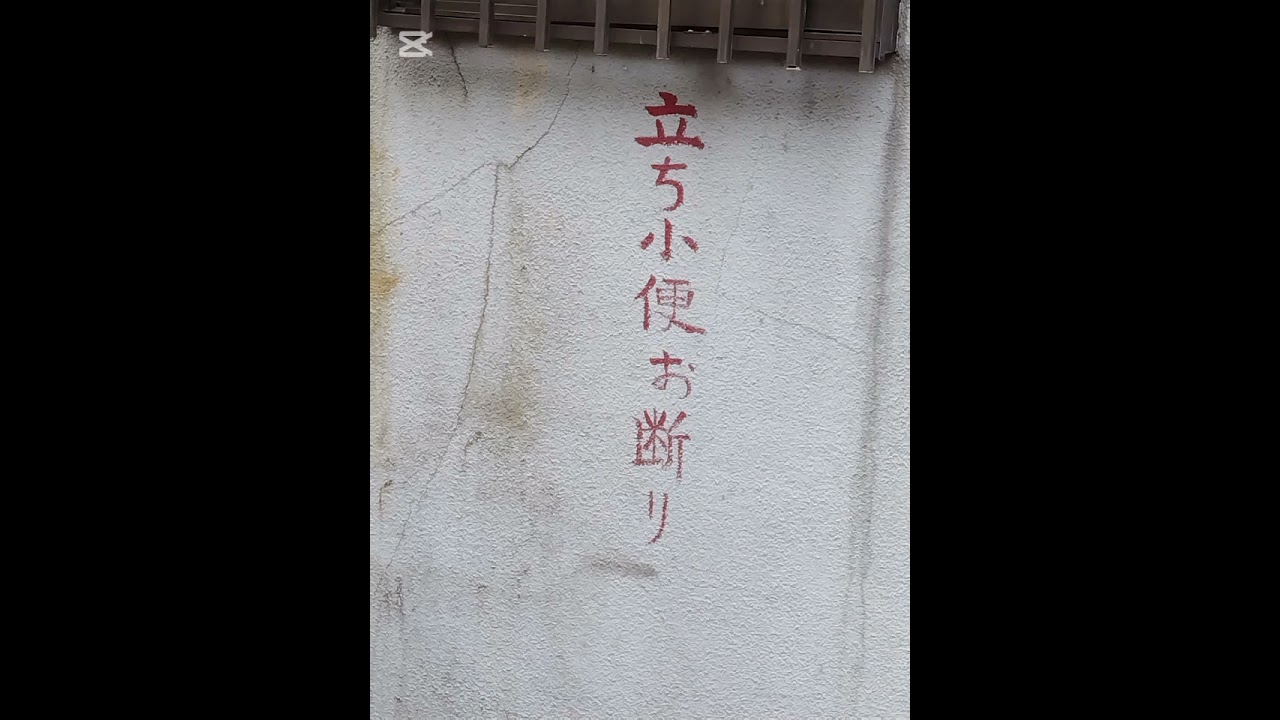 立ち小便お断り